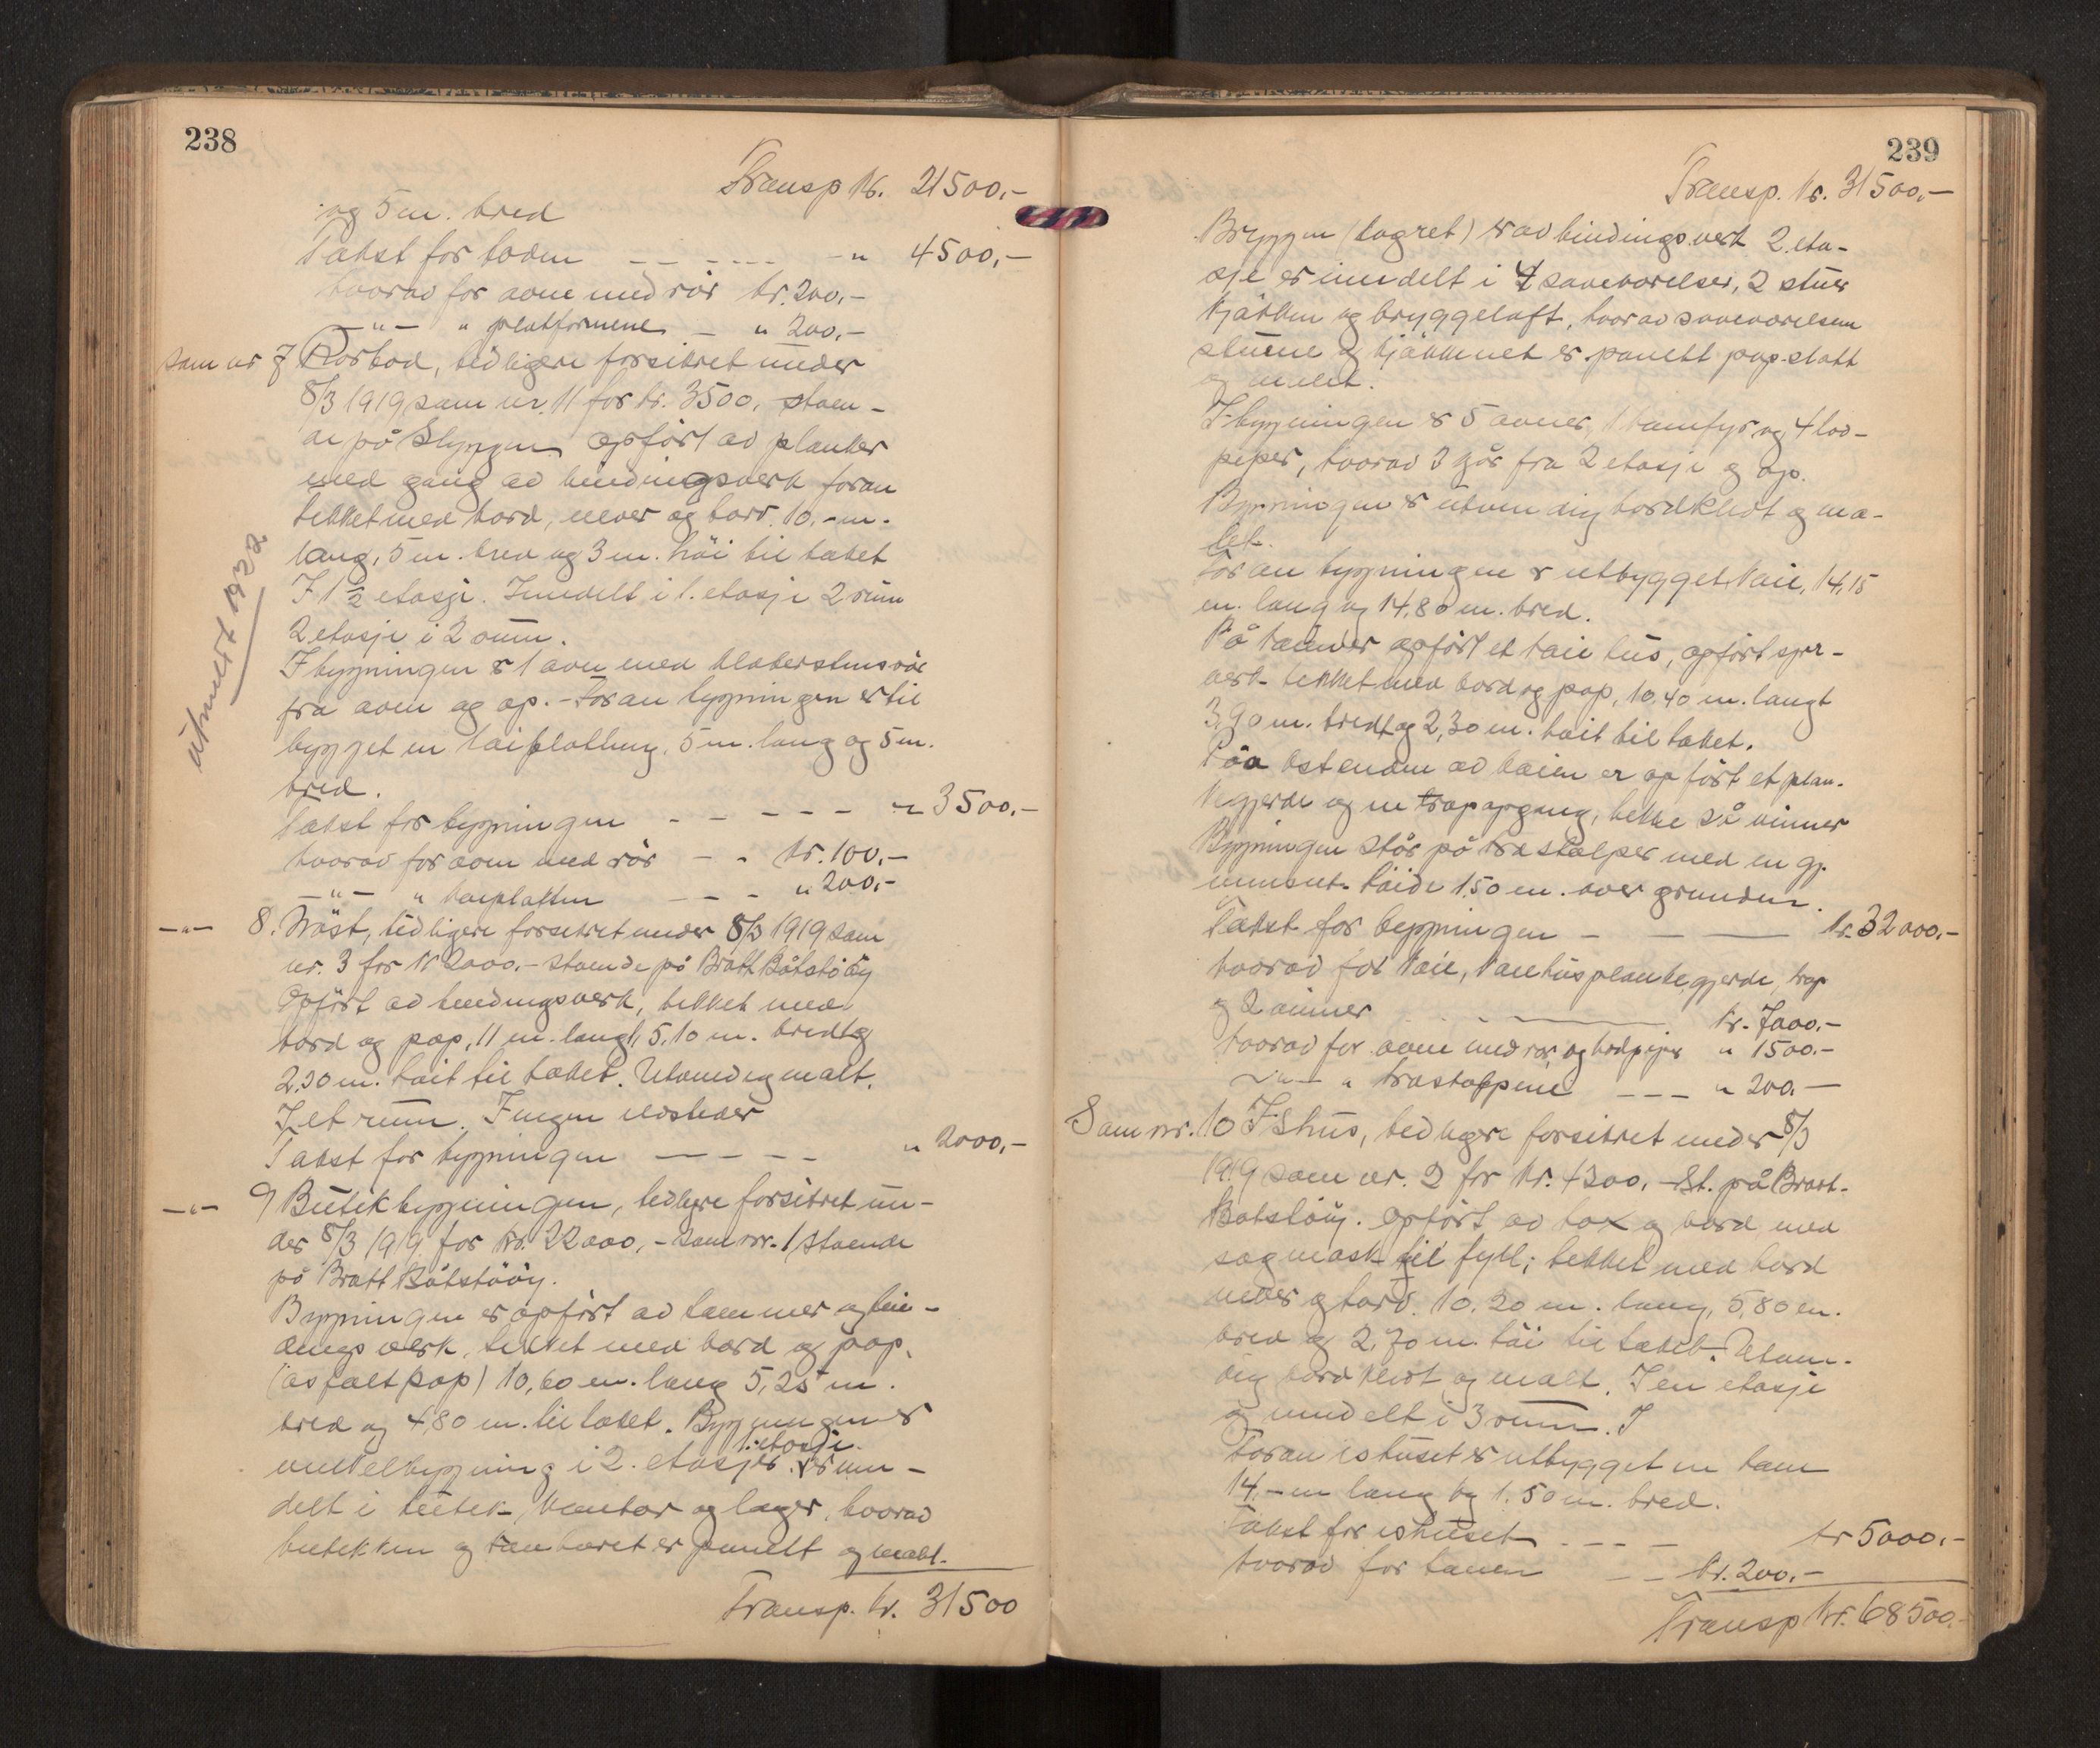 238
Transp kr. 21500,-
og 5 m. bred
Takst for boden - - - - - - " 4500,-
hvorav for ovne med rör kr. 200,-
-"- " platformene - " 200,-
Som nr 7 Rorbod, tidligere forsikret under
8/3 1919 som nr. 11 for kr. 3500, staen-
de på Skjyggen opfört av planker
med gang av bindingsverk foran
tekket med bord, never og torv. 10,- m.
lang, 5 m. bred og 3 m. höi til taket
I 1 1/2 etasje. Inndelt i 1. etasje 2 rum
2 etasje i 2 rum.
I bygningen er 1 ovn med klebersteinsrör
fra ovn og op. - Foran bygningen er til
bygget en kaiplatting, 5 m. lang og 5 m.
bred.
Takst for bygningen - - - - - " 3500,-
hvorav for ovn med rör - - kr. 100,-
-"- " kaiplatten - - - " 200,-
utmeldt 1922
-"- 8. Nöst, tidligere forsikret under 8/3 1919 som
nr. 3 for kr 2000,- staende på Bratt Båtstööy
Opfört av bindingsverk, tekket med
bord og pap, 11 m. langt, 5,10 m. bredt og
2,30 m. höit til taket. Utvendig malt.
I et rum. Ingen ildsteder
Takst for bygningen - - - - " 2000,-
-"- 9 Butikbygningen, tidligere forsikret un-
der 8/3 1919 for kr. 22000,- som nr. 1 staende
på Bratt Båtstööy.
Bygningen er opfört av tømmer og bin-
dings verk, tekket med bord og pap,
(asfaltpap) 10,60 m. lang 5,25 m.
bred og 4,80 m. til taket. Bygningen er
vinkelbygning i 2. etasjer. 1. etasje er inn-
delt i butik, kontor og lager, hvorav
butikken og kontoret er panelt og malt.
Transp. kr. 31500
239
Transp. kr. 31500,-
Bryggen (lagret) er av bindingsverk 2. eta-
sje er inndelt i 4 soveværelser, 2 stuer
kjökken og bryggeloft, hvorav soveværelsene
stuene og kjökkenet er panelt papslått
og malt.
I bygningen er 5 ovner, 1 komfyr og 4 lod-
piper, hvorav 3 går fra 2 etasje og op.
Bygningen er utvendig bordklädt og ma-
let.
Foran bygningen er utbygget kaie, 14,15
m. lang og 14,80 m. bred.
På kaien er opfört et kaie hus, opfört
verk tekket med bord og pap, 10,40 m. langt
3,90 m. bredt og 2,30 m. höit til taket.
Påa östenden av kaien er opfört et plan-
kegjerde og en trapopgang, likeså vinner
Bygningen står på trästolper med en gj.
nemsnit. höide 1,50 m. over grunden.
Takst for bygningen - - - kr. 32000,-
hvorav for kaie, kaiehus plankegjerde, trap
og 2 vinner - - kr. 7000,-
hvorav for ovne med rör og lodpiper " 1500,-
-"- " trästolpene - - - " 200,-
Som nr. 10 Ishus, tidligere forsikret under 8/3
1919 som nr. 2 for kr. 4300,- St. på Bratt-
Båtstööy. Opfört av bord med
sagmask til fyll; tekket med bord
never og torv. 10,20 m. lang, 5,80 m.
bred og 2,70 m. höi til taket. Utven-
dig bordklädt og malt. I en etasje
og inndelt i 3 rum. I
Foran ishuset er utbygget en
14,- m lang og 1,50 m. bred.
Takst for ishuset - - - - kr 5000,-
hvorav for - - kr. 200,-
Transp kr. 68500,-